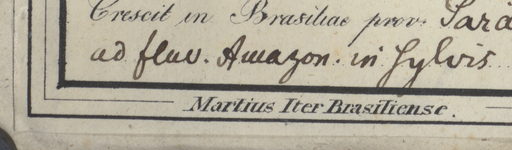 Crescit in Brasiliae prov. Para
ad fluv. Amazon. in Sylvis
Martius Iter Brasiliense.